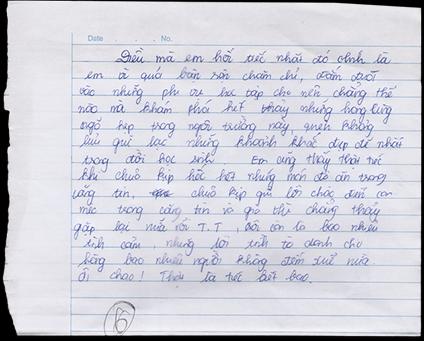 Date No.
Điều mà em hối tiếc nhất đó chính là
em vì quá bận sộn chăm chỉ, đắm đuối
vào những phi vụ học tập cho nên chẳng thể
nào mà khám phá hết những hang cùng
ngõ hẹp trong ngôi trường này, quên không
lưu giữ lại những khoảnh khắc đẹp đẽ nhất
trong đời học sinh. Em cũng thấy thật tiếc
khi chưa kịp hốc hết những món đồ ăn trong
căng tin, chưa kịp gửi lời chào đến con
mèo trong căng tin và giờ thì chẳng thấy
gặp lại nữa rồi T.T, với con là bao nhiêu
tình cảm, nhưng lời tình ta dành cho
bao nhiêu người không đếm xuể nữa
Ôi chao! Thật là tiếc biết bao.
6